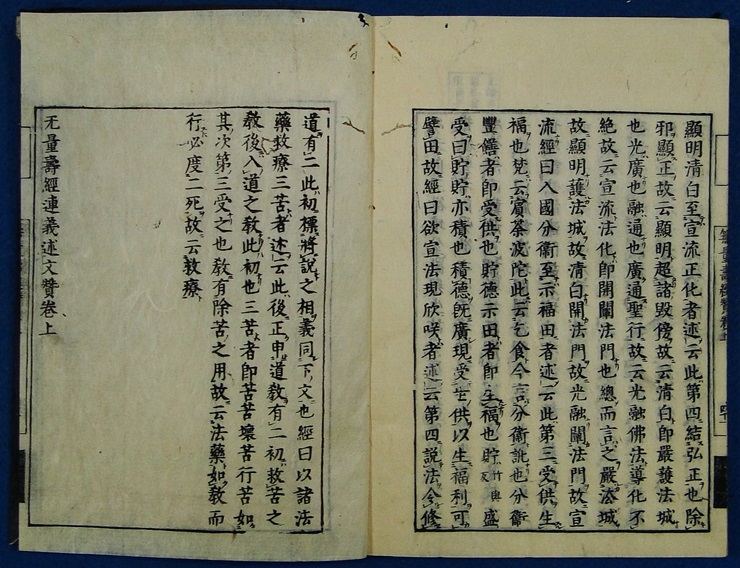 顯明清白至宣流正化者述云此第四結弘正也除
邪顯正故云顯明超諸毀傍故云清白即嚴護法城
也光廣也融通也廣通聖行故云光融佛法導化不
絶故云宣流法化即開闡法門也總而言之嚴法城
故顯明護法城故清白開法門故光融闡法門故宣
流經曰入國分衛至示福田者述云此第三受供生
福也梵云賓荼波陀此云乞食今言分衛訛也分衛
豐饍者即受供也貯德示田者即生福也貯竹與反盛
受曰貯貯亦積也積德既廣現受生供以生福利可
譬田故經曰欲宣法現欣咲者述云第四說法令修
道有二此初標將說之相義同下文也經曰以諸法
藥救療三苦者述云此後正申道教有二初救苦之
教後入道之教此初也三苦者即苦苦壞苦行苦如
其次第三受之也教有除苦之用故云法藥如教而
行必度二死故云救療
无量壽經連義述文贊卷上